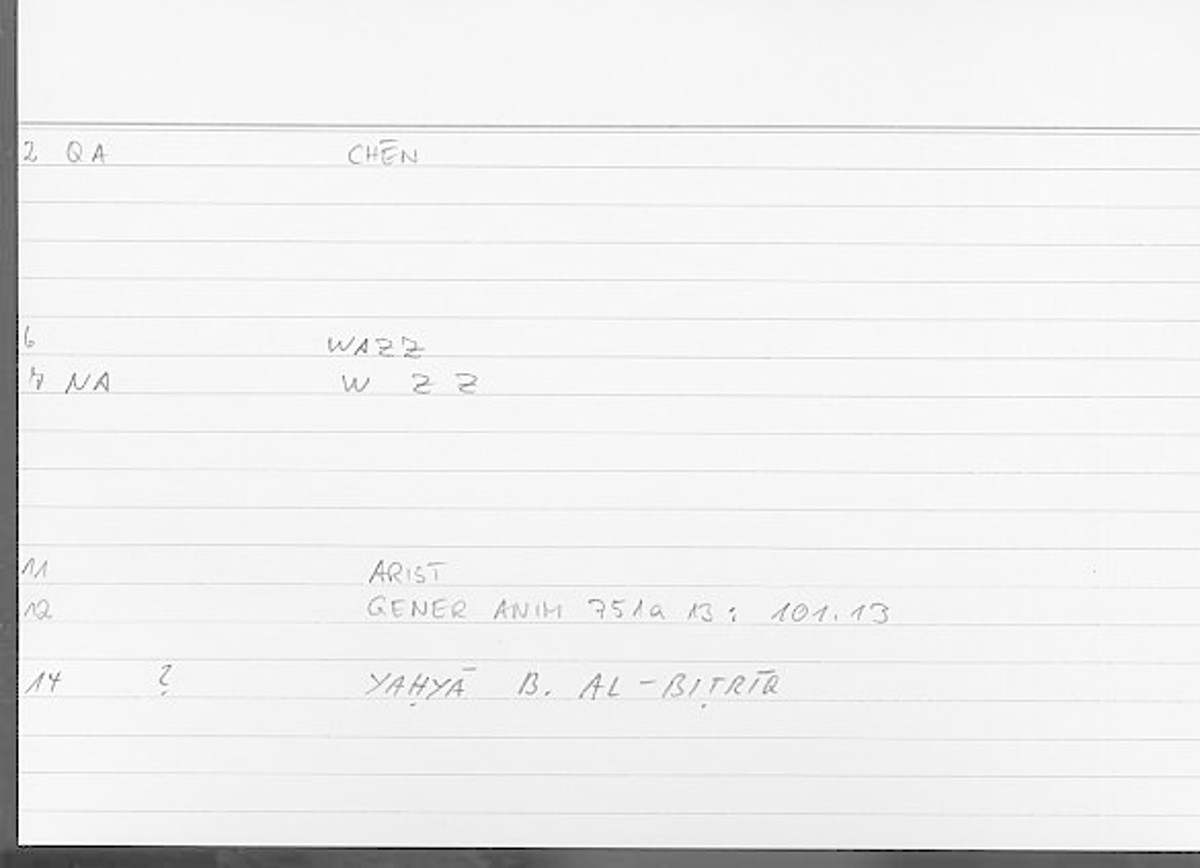 2 QA CHĒN
6 WAZZ
7 NA W Z Z
11 ARIST
12 GENER ANIM 751a 13: 101.13
14 ? YAḤYĀ B. AL-BIṬRĪQ